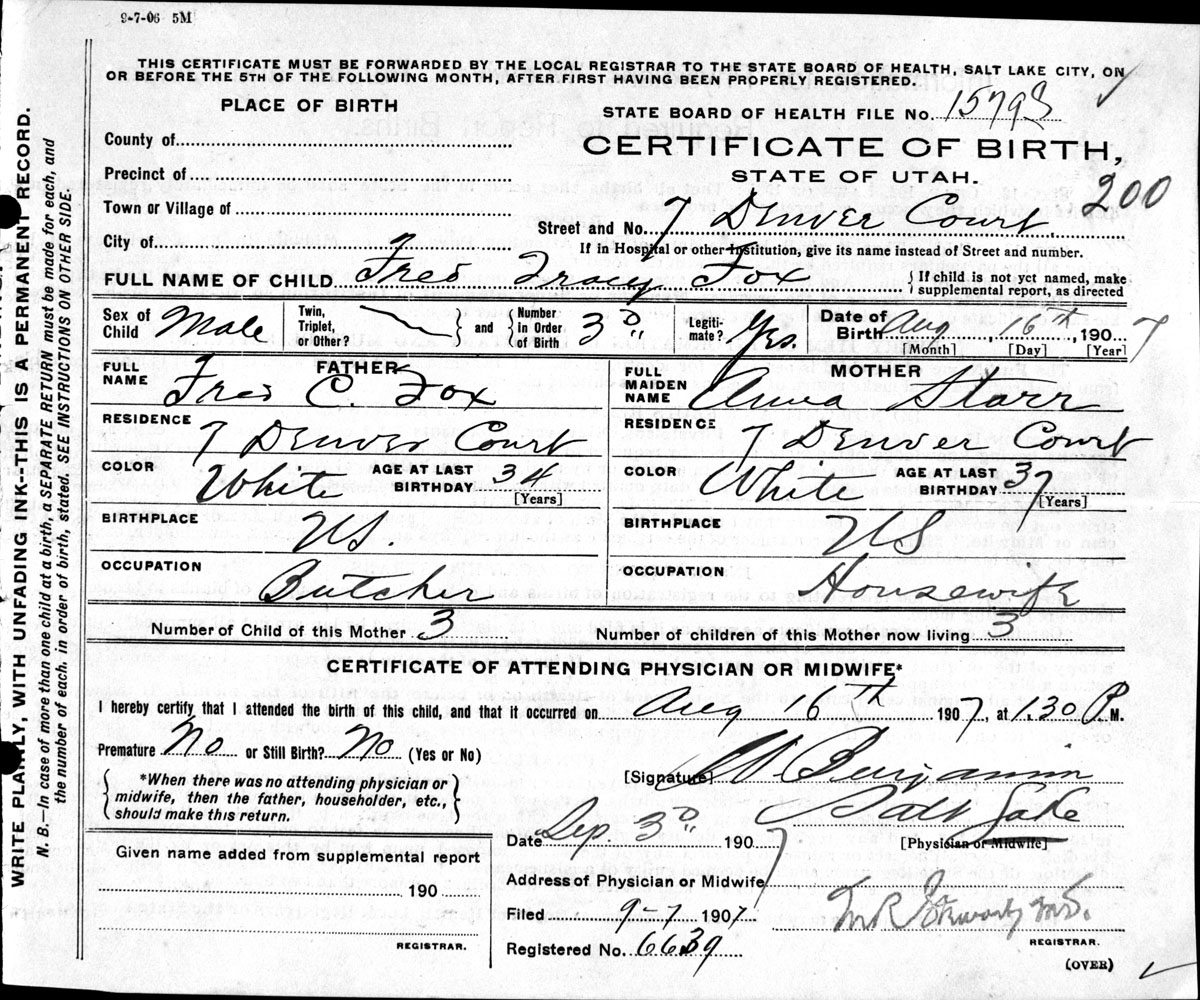 9-7-06 5M
THIS CERTIFICATE MUST BE FORWARDED BY THE LOCAL REGISTRAR TO THE STATE BOARD OF HEALTH, SALT LAKE CITY, ON
OR BEFORE THE 5TH OF THE FOLLOWING MONTH, AFTER FIRST HAVING BEEN PROPERLY REGISTERED.
WRITE PLAINLY, WITH UNFADING INK--THIS IS A PERMANENT RECORD.
N. B.—In case of more than one child at a birth, a SEPARATE RETURN must be made for each, and
the number of each, in order of birth, stated. SEE INSTRUCTIONS ON OTHER SIDE.
PLACE OF BIRTH
County of
Precinct of
Town or Village of
City of
STATE BOARD OF HEALTH FILE No. 15793
CERTIFICATE OF BIRTH,
STATE OF UTAH.
200
Street and No. 7 Denver Court
If in Hospital or other Institution, give its name instead of Street and number.
FULL NAME OF CHILD Fred Tracy Fox { If child is not yet named, make
supplemental report, as directed
Sex of Child Male
Twin, Triplet, or Other? } and { Number in Order of Birth 3d
Legitimate? Yes.
Date of Birth Aug 16th, 1907
[Month] [Day] [Year]
FATHER
FULL NAME Fred C. Fox
RESIDENCE 7 Denver Court
COLOR White AGE AT LAST BIRTHDAY 34 [Years]
BIRTHPLACE US.
OCCUPATION Butcher
MOTHER
FULL MAIDEN NAME Anna Starr
RESIDENCE 7 Denver Court
COLOR White AGE AT LAST BIRTHDAY 37 [Years]
BIRTHPLACE US
OCCUPATION Housewife
Number of Child of this Mother 3 Number of children of this Mother now living 3
CERTIFICATE OF ATTENDING PHYSICIAN OR MIDWIFE*
I hereby certify that I attended the birth of this child, and that it occurred on Aug 16th 1907, at 1.30 P. M.
Premature No or Still Birth? No (Yes or No)
{ *When there was no attending physician or
midwife, then the father, householder, etc.,
should make this return. }
[Signature] Benjamin
Salt Lake
Date Sep. 3d 1907 [Physician or Midwife]
Given name added from supplemental report
190
REGISTRAR.
Address of Physician or Midwife
Filed 9-7 1907
Registered No. 6639
M.D.
REGISTRAR.
(OVER)